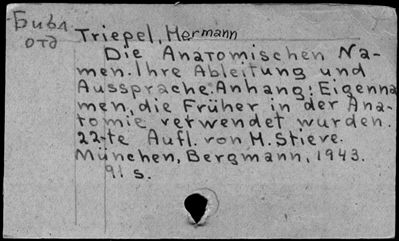 Библ
отд
Triepel, Hermann
Die Anatomischen Na-
men. Ihre Ableitung und
Aussprache. Anhang: Eigenna
men, die Früher in der Ana-
tomie verwendet wurden.
22-te Aufl. von H. Stieve.
München, Bergmann, 1943.
91 s.